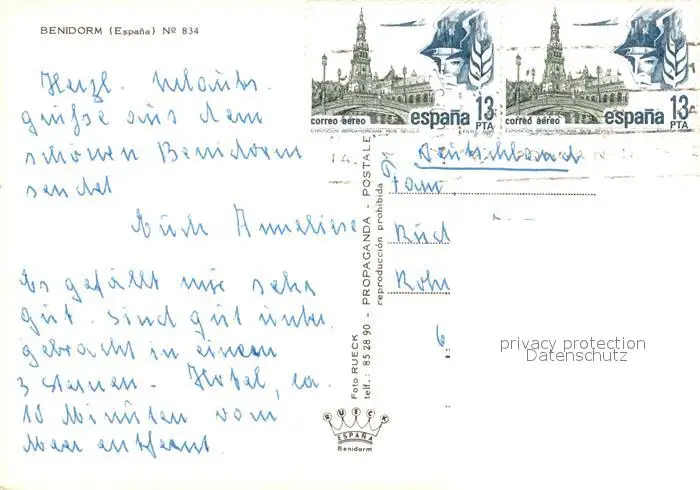 BENIDORM (España) Nº 834
Herzl. Urlaubs-
grüße aus dem
schönen Benidorm
sendet
Euch Anneliese
Es gefällt mir sehr
gut. Sind gut unter-
gebracht in einem
3 Sternen-Hotel, ca.
10 Minuten vom
Meer entfernt.
Foto RUECK
telf.: 85 28 90 - PROPAGANDA - POSTALES
reproducción prohibida
RUECK
ESPAÑA
Benidorm
correo aéreo
españa 13
PTA
EXPOSICION IBEROAMERICANA 1929. SEVILLA
correo aéreo
españa 13
PTA
EXPOSICION IBEROAMERICANA 1929. SEVILLA
Deutschland
Fam
6
privacy protection
Datenschutz